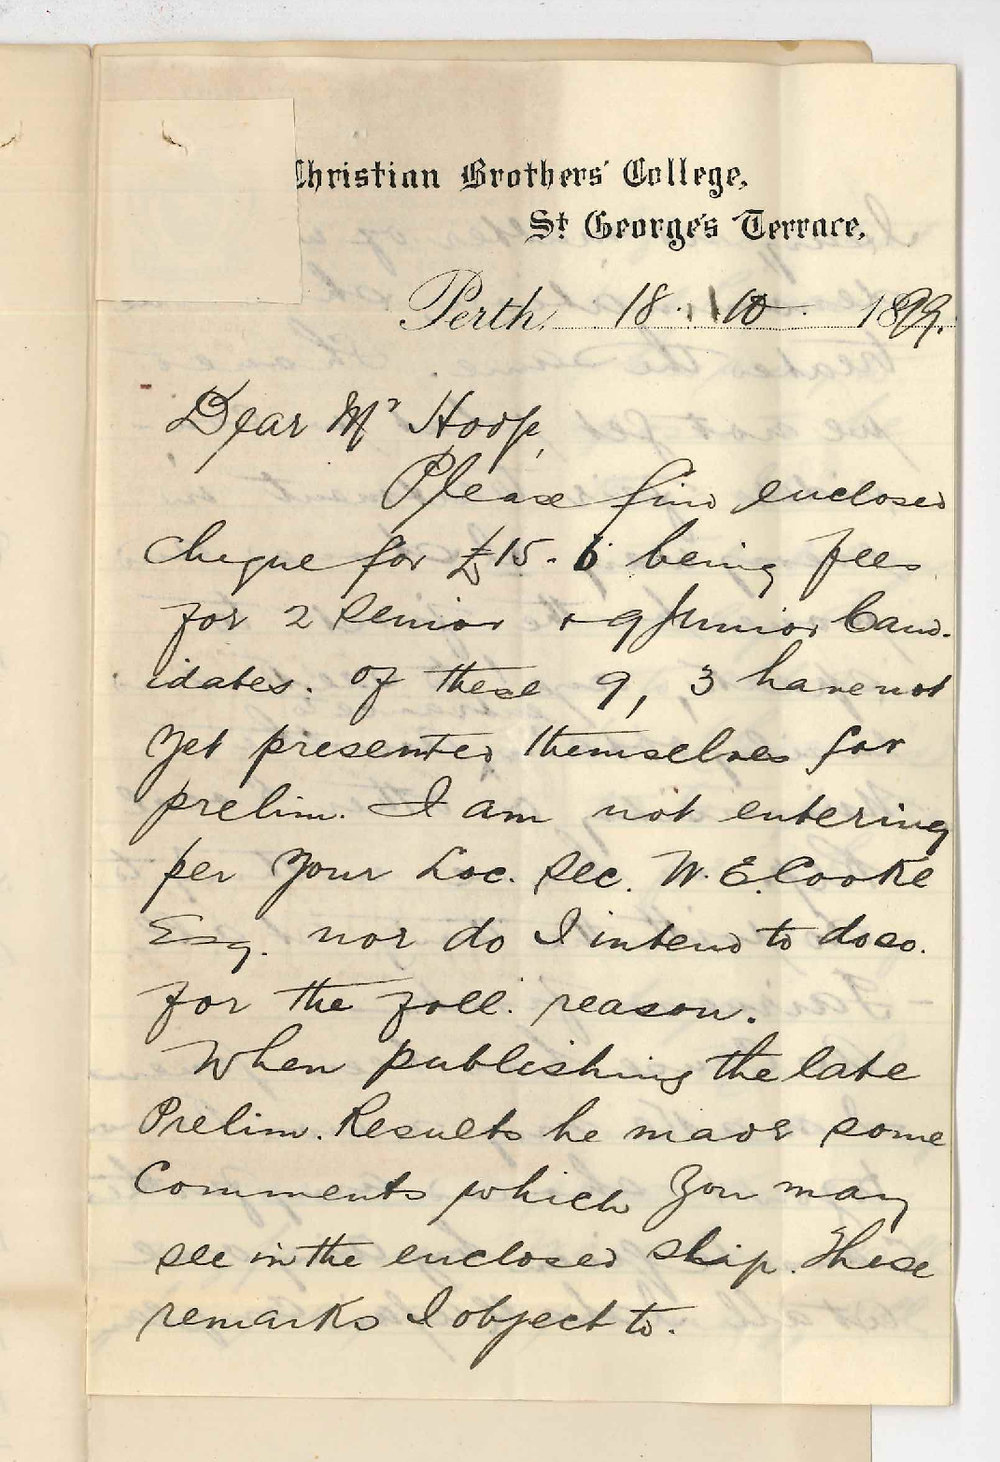 Christian Brothers' College,
St George's Terrace,
Perth, 18. 10. 1899.
Dear Mr Hoop,
Please find enclosed
cheque for £15. 6 being fees
for 2 Senior & 9 Junior Cand-
idates. Of these 9, 3 have not
yet presented themselves for
prelim. I am not entering
per your Loc. Sec. W. E. Cooke
Esq. nor do I intend to do so.
for the foll. reason.
When publishing the late
Prelim. Results he made some
Comments which you may
see in the enclosed slip. These
remarks I object to.